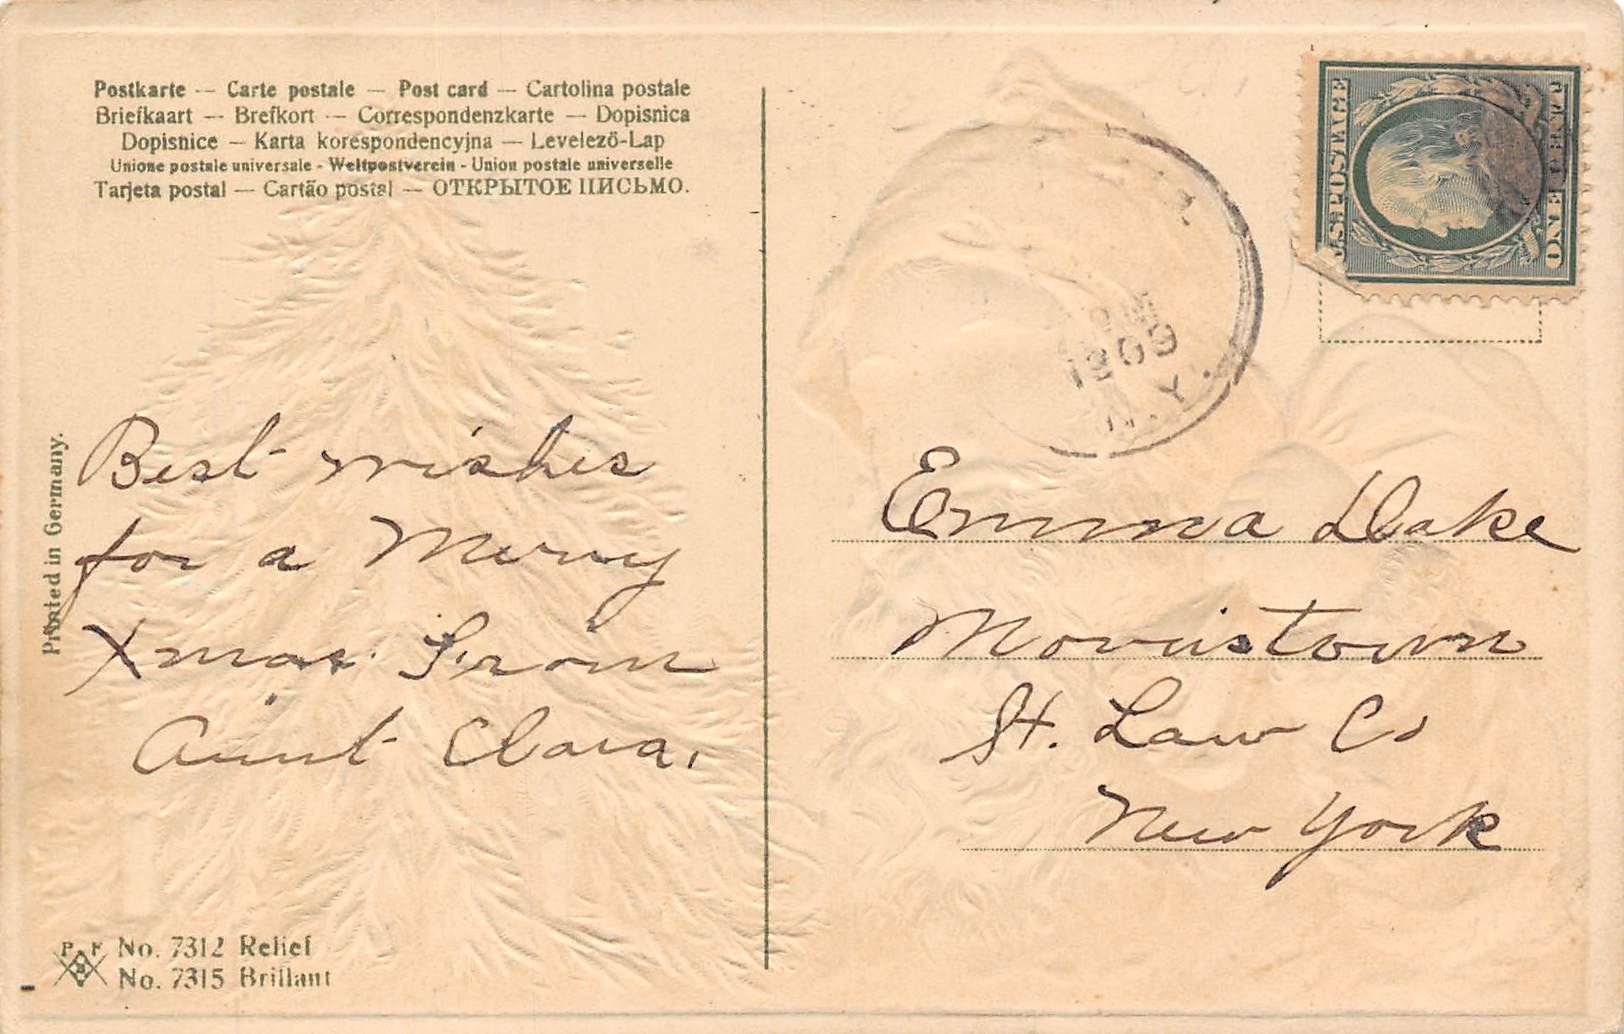 Postkarte — Carte postale — Post card — Cartolina postale
Briefkaart — Brefkort — Correspondenzkarte — Dopisnica
Dopisnice — Karta korespondencyjna — Levelező-Lap
Unione postale universale - Weltpostverein - Union postale universelle
Tarjeta postal — Cartão postal — ОТКРЫТОЕ ПИСЬМО.
U.S. POSTAGE
ONE CENT
1909
N.Y.
Best wishes
for a Merry
Xmas. From
Aunt Clara.
Emma Dake
Morristown
St. Law Co
New York
Printed in Germany.
P F B
No. 7312 Relief
No. 7315 Brillant